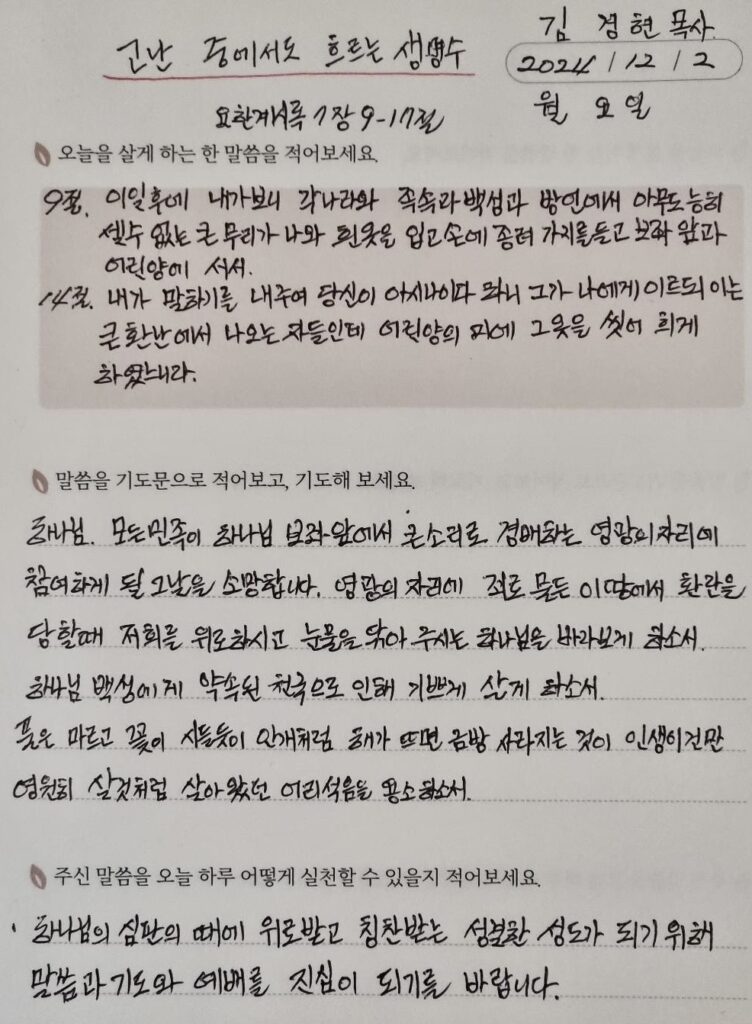 김 경현 목사.
고난 중에서도 흐르는 생명수
2024 / 12 / 2
월 요일
요한계시록 7장 9-17절
오늘을 살게 하는 한 말씀을 적어보세요.
9절. 이일후에 내가보니 각나라와 족속과 백성과 방언에서 아무도 능히
셀수 없는 큰 무리가 나와 흰옷을 입고 손에 종려 가지를 들고 보좌 앞과
어린양에 서서.
14절. 내가 말하기를 내주여 당신이 아시나이다 하니 그가 나에게 이르되 이는
큰 환난에서 나오는 자들인데 어린양의 피에 그 옷을 씻어 희게
하였느니라.
말씀을 기도문으로 적어보고, 기도해 보세요.
하나님. 모든민족이 하나님 보좌 앞에서 큰소리로 경배하는 영광의 자리에
참여하게 될 그날을 소망합니다. 영광의 자리에 죄로 물든 이땅에서 환란을
당할때 저희를 위로하시고 눈물을 닦아 주시는 하나님을 바라보게 하소서.
하나님 백성에게 약속된 천국으로 인해 기쁘게 살게 하소서.
풀은 마르고 꽃이 시들듯이 안개처럼 해가 뜨면 금방 사라지는 것이 인생이건만
영원히 살것처럼 살아왔던 어리석음을 용소하소서.
주신 말씀을 오늘 하루 어떻게 실천할 수 있을지 적어보세요.
· 하나님의 심판의 때에 위로받고 칭찬받는 성결한 성도가 되기 위해
말씀과 기도와 예배를 진심이 되기를 바랍니다.